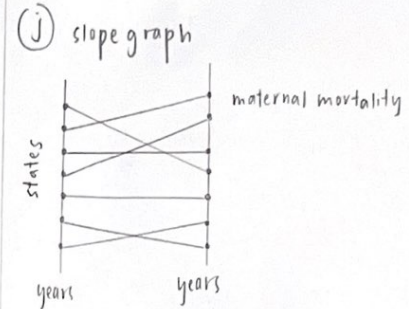 j slope graph
maternal mortality
states
years years